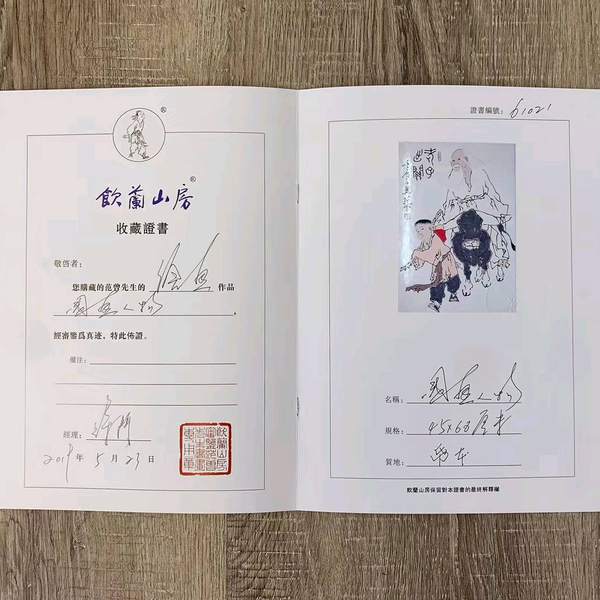 ®
飲蘭山房®
收藏證書
敬啓者：
您購藏的范曾先生的 绘画 作品
國畫人物 .
經審鑒爲真迹，特此佈證。
備注：
經理：
2019 年 5 月 23 日
證書編號： 61021
老子出關
名稱： 國畫人物
規格： 45x68厘米
質地： 紙本
飲蘭山房保留對本證書的最終解釋權